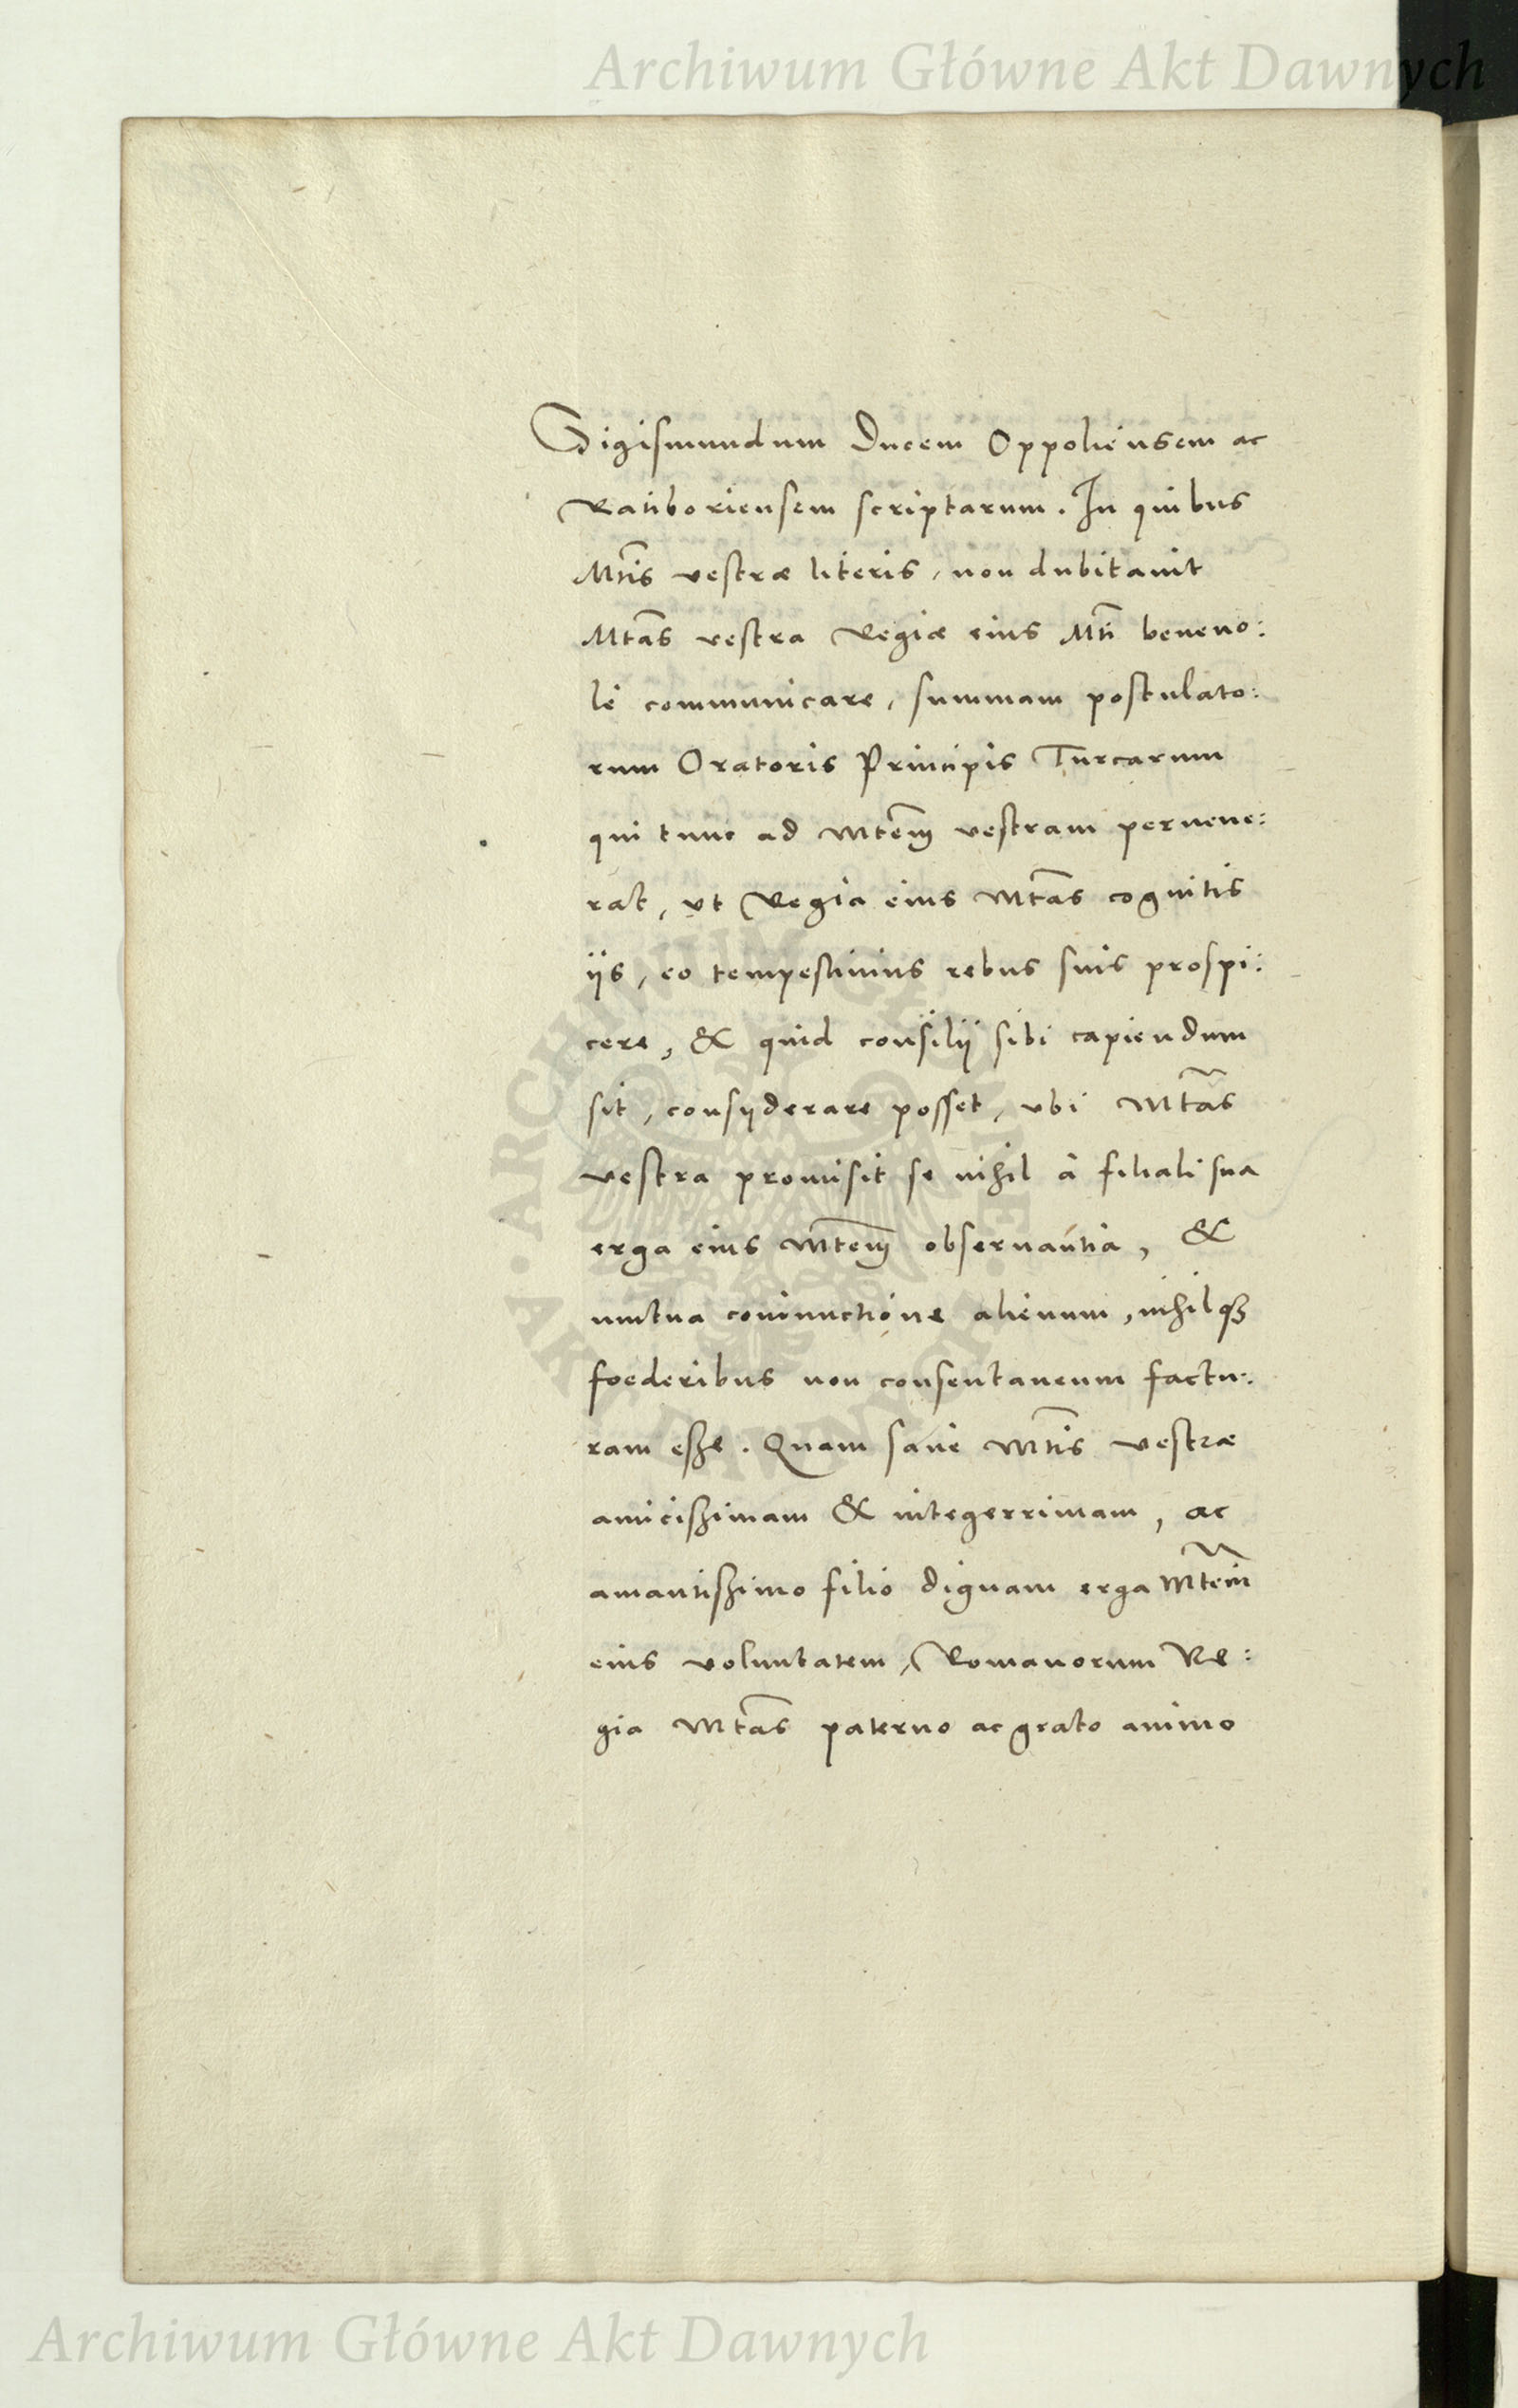 Archiwum Główne Akt Dawnych
Sigismundum Ducem Oppoliensem ac
Ratiboriensem scriptarum. In quibus
Mtis vestræ literis, non dubitavit
Mtas vestra Regiæ eius Mti beneuo:
le communicare, summam postulato:
rum Oratoris Principis Turcarum
qui tunc ad Mtem vestram peruene:
rat, vt Regia eius Mtas cognitis
ijs, eo tempestiuius rebus suis prospi:
cere, & quid consilij sibi capiendum
sit, consyderare posset, vbi Mtas
vestra promisit se nihil à filiali sua
erga eius Mtem obseruantia, &
mutua coniunctione alienum, nihilq3
foederibus non consentaneum factu:
ram eße. Quam sane Mtis vestræ
amicißimam & integerrimam, ac
amantißimo filio dignam erga Mtem
eius voluntatem, Romanorum Re:
gia Mtas paterno ac grato animo
ARCHIWUM GŁÓWNE · AKT DAWNYCH ·
Archiwum Główne Akt Dawnych